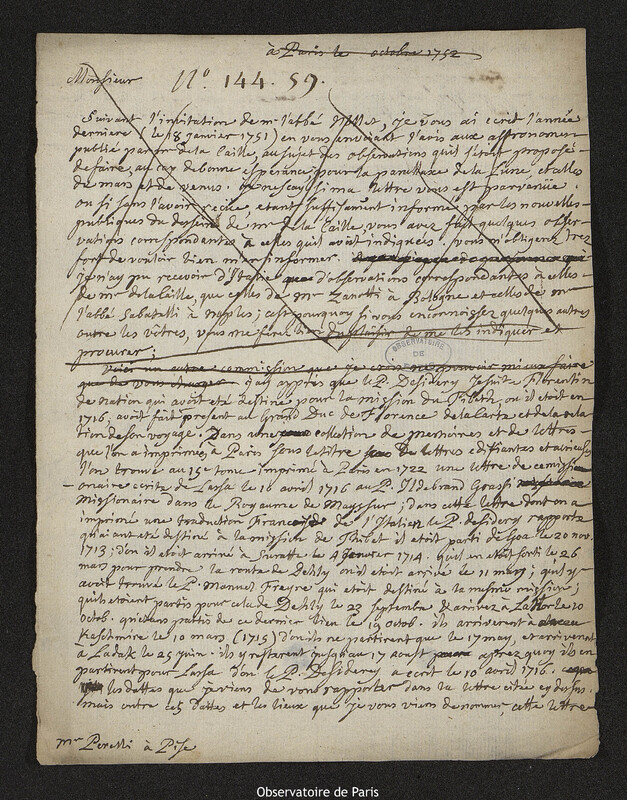 à Paris le octobre 1752
Monsieur
No. 144. 59.
Suivant l'invitation de mr l'abbé Nollet, je vous ai écrit l'année
derniere (le 18 janvier 1751) en vous envoiant l'avis aux astronomes
publié par mr de la Caille, au sujet des observations qu'il s'étoit proposé
de faire, au cap de bonne esperance, pour la parallaxe de la Lune, et celles
de mars et de venus. je ne sçay si ma lettre vous est parvenüe.
ou si sans l'avoir recüe étant suffisament informé par les nouvelles
publiques du dessein de mr de la Caille, vous avez fait quelques obser-
vations correspondantes à celles qu'il avoit indiquées. vous m'obligerez tres
fort de vouloir bien m'en informer.
je n'ay pu recevoir d'Italie que d'observations correspondantes à celles
de mr de la Caille, que celles de mr Zanotti à Bologne et celles de mr
l'abbé Sabatelli à Naples; c'est pourquoy si vous en connoissez quelques autres
outre les vôtres, vous me ferez plaisir de me les indiquer et
procurer;
Voici un autre commission que je ne pouvois mieux faire
que de vous charger j'ay appris que le P. Desidery Jesuite Florentin
de nation qui avoit eté destiné pour la mission du Thibet, ou il etoit en
1716, avoit fait present au Grand Duc de Florence de la Carte et de la rela-
tion de son voyage. Dans une collection de memoires et de lettres
que l'on a imprimée à Paris sous le titre de lettres edifiantes et curieuses
l'on trouve au 15e tome imprimé à Paris en 1722 une lettre de ce mission-
naire ecrite de Lassa le 10 avril 1716 au P. Ildebrand Grassi
Missionaire dans le Royaume de Mayssur; dans cette lettre dont on a
imprimé une traduction Françoise de l'Italien le P. desidery rapporte
qu'aiant eté destiné à la mission de Thibet il etoit parti de Goa le 20 nov.
1713; d'où il etoit arrivé à Suratte le 4 Janvier 1714. qu'il en etoit sorti le 26
mars pour prendre la route de Dehly où il etoit arrivé le 11 may; qu'il y
avoit trouvé le P. Manuel Freyre qui etoit destiné à la même mission;
qu'ils etoient partis pour cela de Dehly le 23 septembre et arrivez à Lahor le 10
octob. que dans partis de ce dernier lieu le 19 octob. ils arriverent à
Kaschmire le 10 mars (1715) d'où ils ne partirent que le 17 may, et arriverent
à Ladak le 25 juin. ils y resterent jusqu'au 17 aoust aprez quoy ils en
partirent pour Lassa d'où le P. Desidery a ecrit le 10 avril 1716.
les dattes que je viens de vous rapporter dans la lettre citée cy dessus.
mais outre ces Dattes et les lieux que je vous viens de nommer, cette lettre
mr Perelli à Pise
OBSERVATOIRE DE
Observatoire de Paris